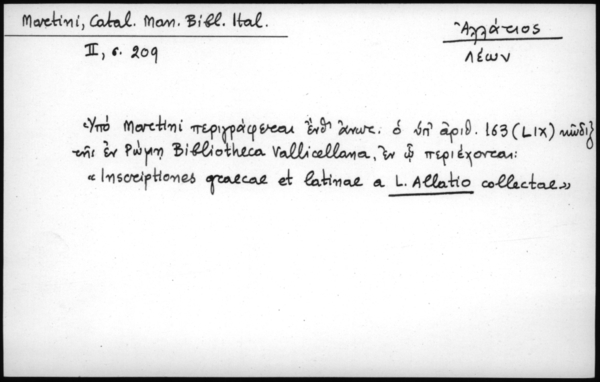 Martini, Catal. Man. Bibl. Ital.
II, σ. 209
Ἀλλάτιος
Λέων
Ὑπό Martini περιγράφεται ἔνθ' ἄνωτ. ὁ ὑπ' ἀριθ. 163 (LIX) κῶδιξ
τῆς ἐν Ρώμῃ Bibliotheca Vallicellana, ἐν ᾧ περιέχονται:
«Inscriptiones graecae et latinae a L. Allatio collectae»